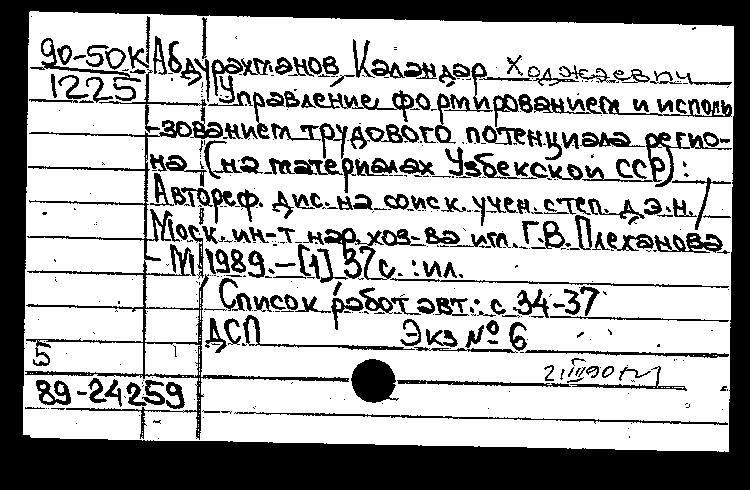 90-50К Абдурахманов, Каландар Ходжаевич
1225 Управление формированием и исполь
-зованием трудового потенциала регио-
на (на материалах Узбекской ССР):
Автореф. дис. на соиск. учен. степ. д.э.н./
Моск. ин-т нар. хоз-ва им. Г.В. Плеханова
- М 1989.-[1] 37с. :ил.
Список работ авт.: с 34-37
ДСП Экз № 6
5
89-24259